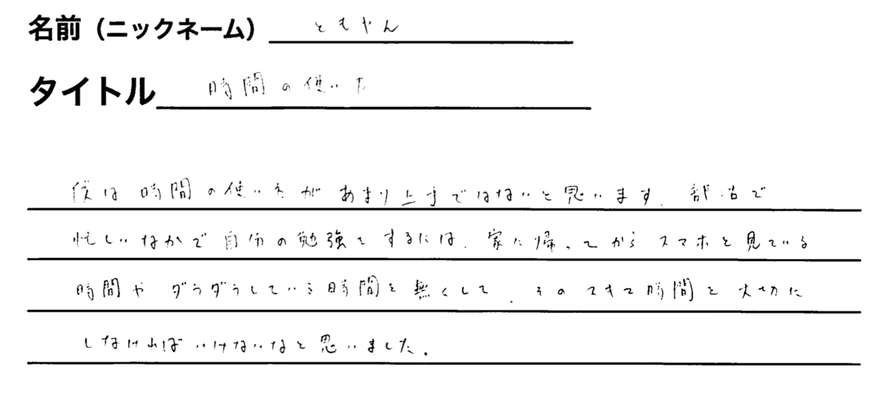 名前（ニックネーム） ともやん
タイトル 時間の使いかた
僕は時間の使い方があまり上手ではないと思います。部活で
忙しいなかで自分の勉強をするには、家に帰ってからスマホを見ている
時間やダラダラしている時間を無くして、そのスキマ時間を大切に
しなければいけないなと思いました。